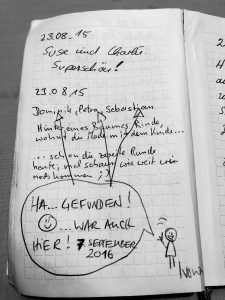 23.08.15
Suse und Charlie
Superschön!
23.08.15
Dominik, Petra, Sebastian
Hinter eines Baumes Rinde,
wohnt die Made mit dem Kinde...
... schon die zweite Runde
heute, mal schauen wie weit wir
noch kommen ;)
HA... GEFUNDEN!
... WAR AUCH
HIER! 7 SEPTEMBER
2016